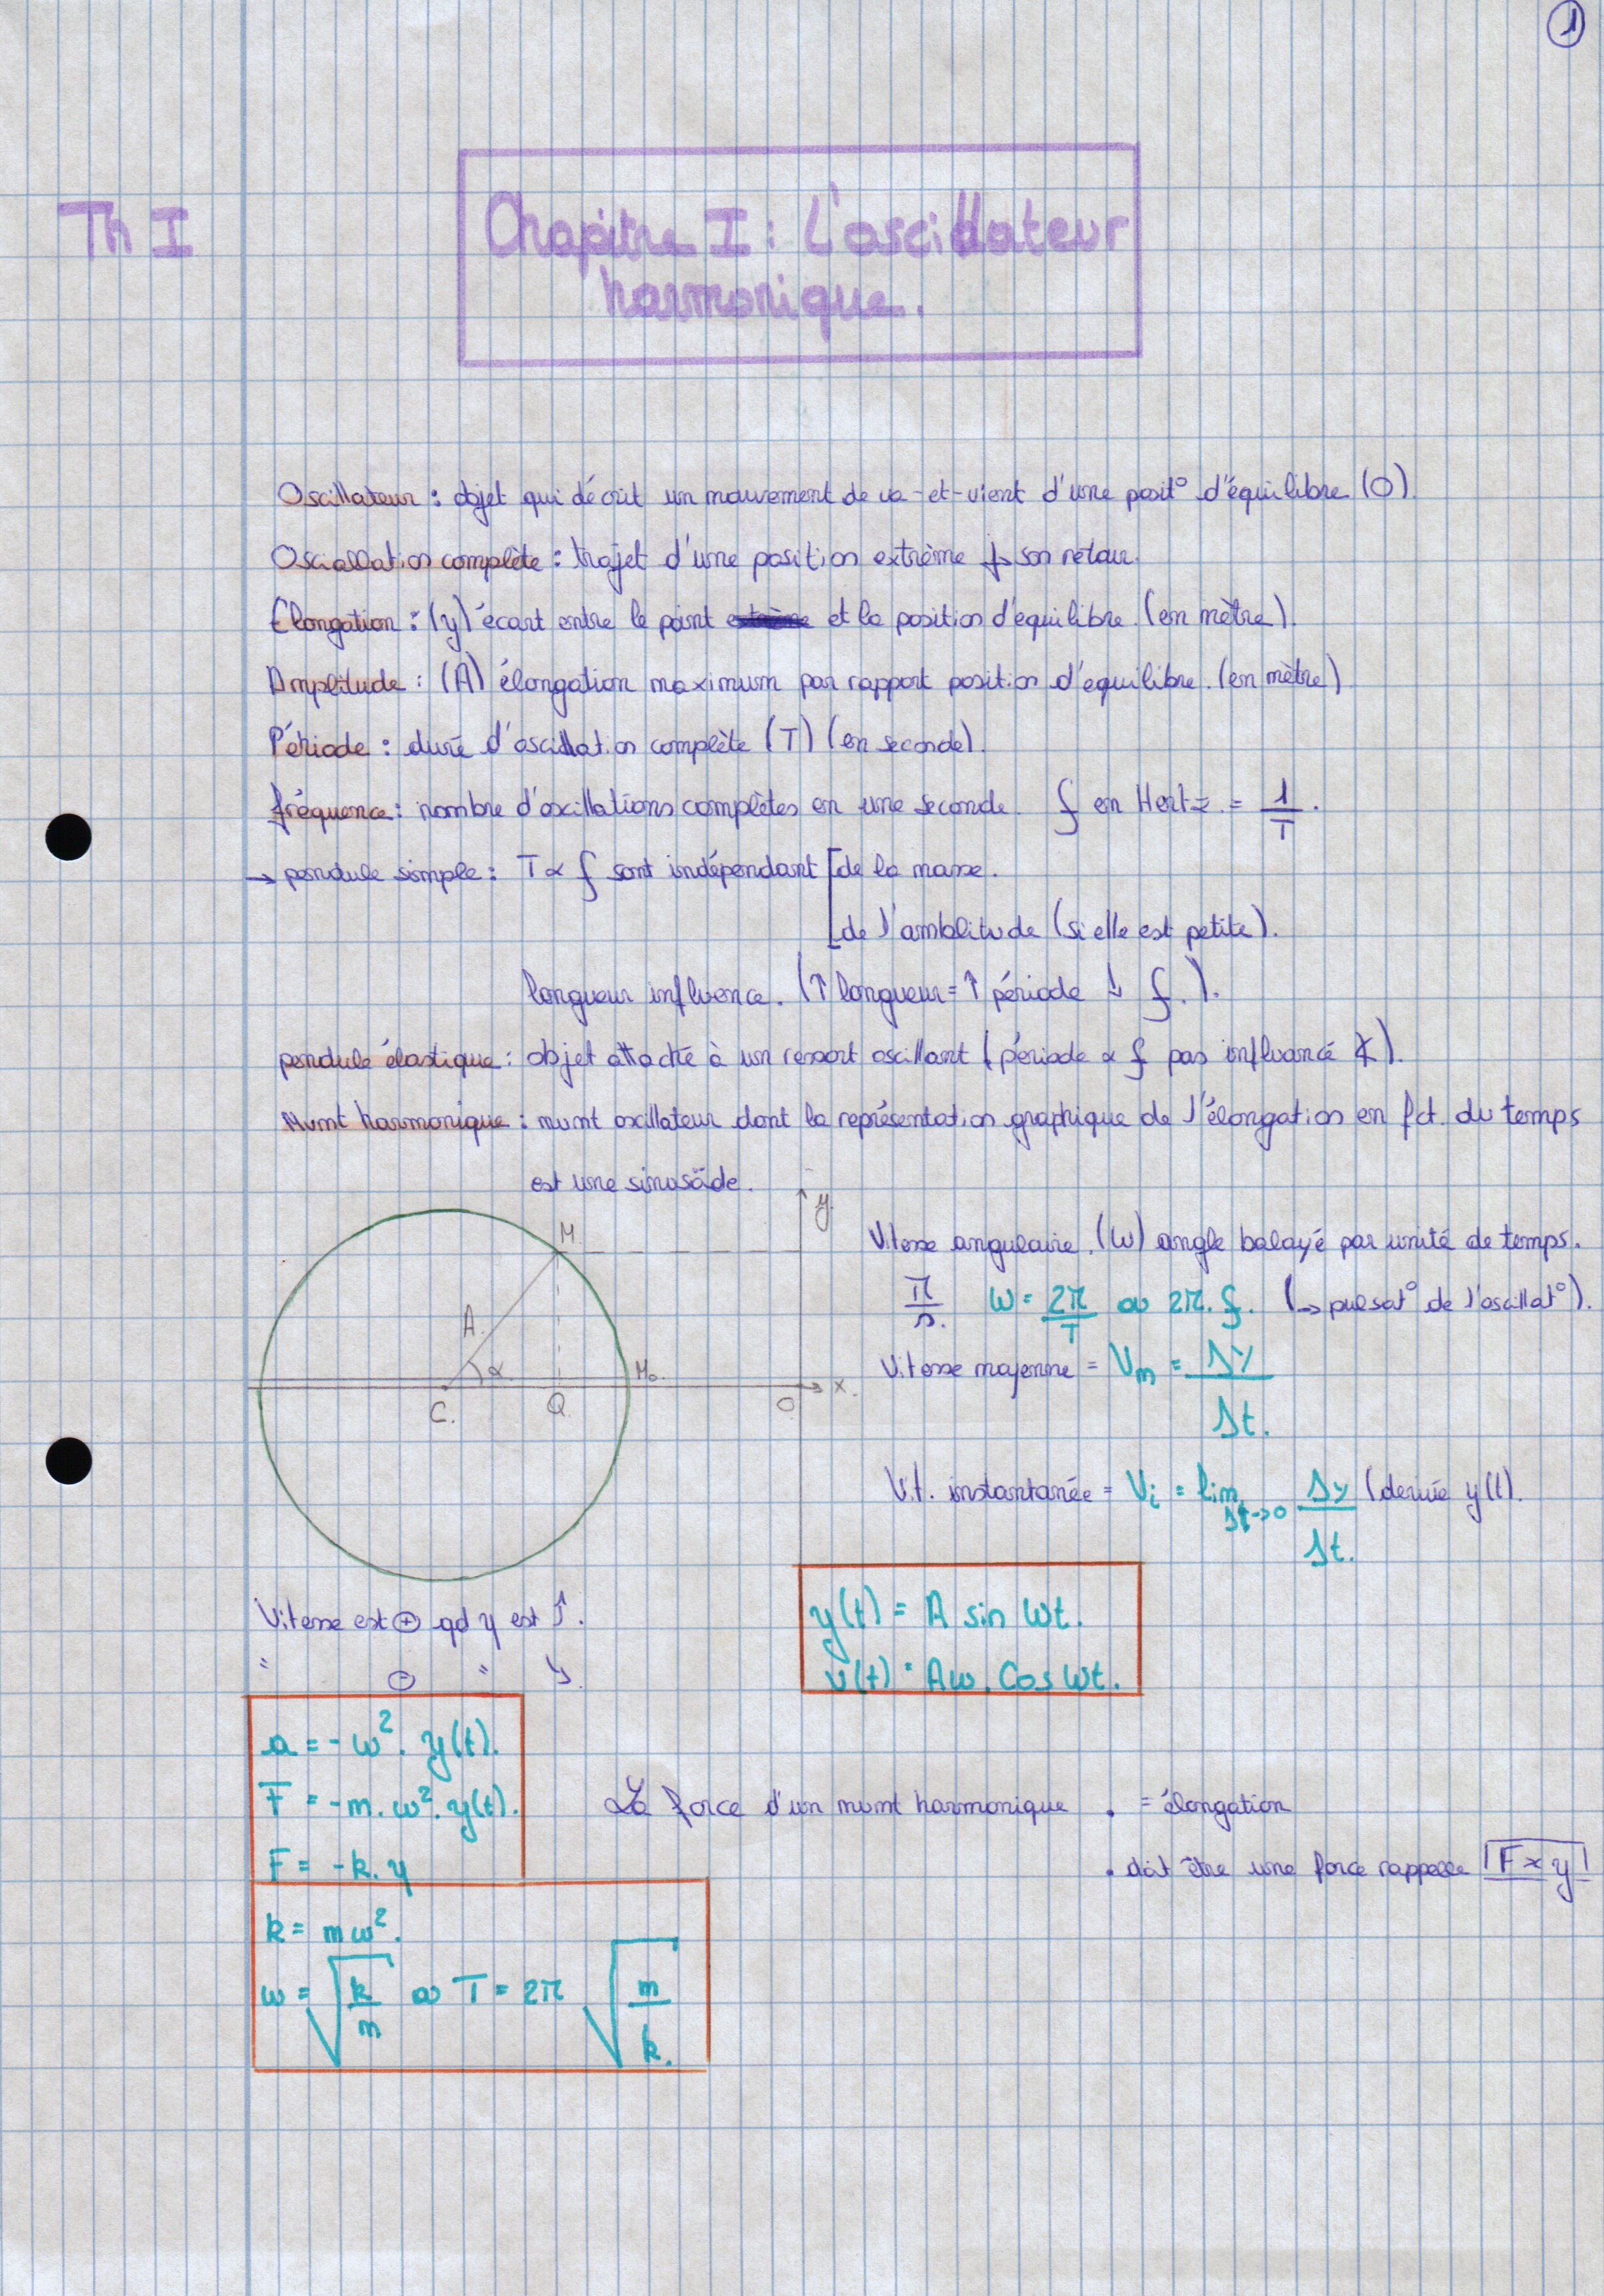 1
Th I
Chapitre I : L'oscillateur
harmonique.
Oscillateur : objet qui décrit un mouvement de va-et-vient d'une posit° d'équilibre (O).
Osciallation complète : trajet d'une position extrème → son retour.
Élongation : (y) écart entre le point et la position d'équilibre. (en mètre).
Amplitude : (A) élongation maximum par rapport position d'équilibre. (en mètre)
Période : duré d'oscillation complète (T) (en seconde).
fréquence : nombre d'oscillations complètes en une seconde. f en Hertz. = 1/T.
→ pendule simple : T ∝ f sont indépendant [de la masse.
[de l'amblitude (si elle est petite).
longueur influence. (↑ longueur = ↑ période ↓ f.).
pendule élastique : objet attaché à un ressort oscillant (période ∝ f pas influancé
Mvmt harmonique : mvmt oscillateur dont la représentation graphique de l'élongation en fct. du temps
est une sinusoïde.
y
M
A.
α
M₀.
C.
Q.
O
x.
Vitesse angulaire. (ω) angle balayé par unité de temps.
π/s. ω = 2π/T ou 2π.f. (→ pulsat° de l'oscillat°).
Vitesse moyenne = Vm = Δy/Δt.
Vit. instantanée = Vi = lim Δt→0 Δy/Δt. (derivée y(t).
Vitesse est ⊕ qd y est ↑.
" ⊖ " ↘.
y(t) = A sin ωt.
v(t) = Aω. Cos ωt.
a = -ω². y(t).
F = -m. ω². y(t).
F = -k. y
La force d'un mvmt harmonique . = élongation
. doit être une force rappelle |F × y|
k = mω².
ω = √(k/m) ou T = 2π √(m/k).